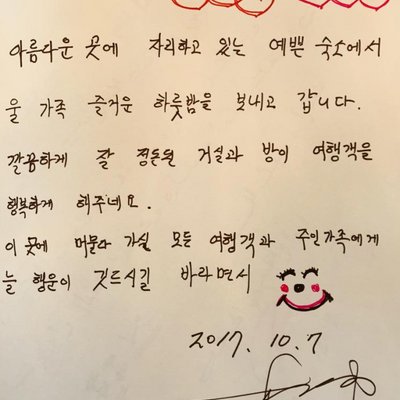 아름다운 곳에 자리하고 있는 예쁜 숙소에서
울 가족 즐거운 하룻밤을 보내고 갑니다.
깔끔하게 잘 정돈된 거실과 방이 여행객을
행복하게 해주네요.
이 곳에 머물다 가실 모든 여행객과 주인가족에게
늘 행운이 깃드시길 바라면서
2017. 10. 7